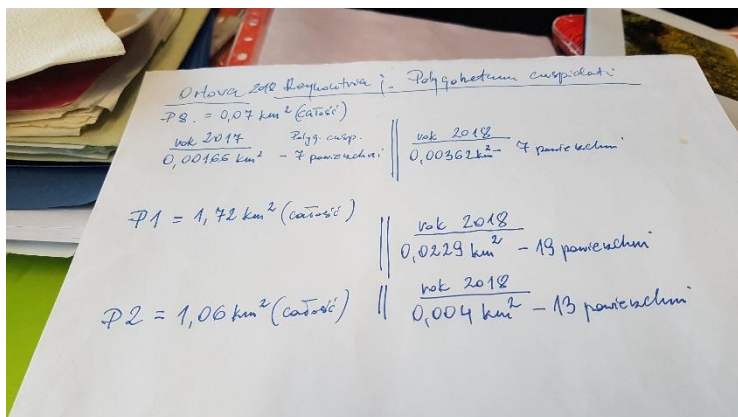 Orlova 2018 Reynoutria j. Polygonetum cuspidati
P8. = 0,07 km² (całość)
rok 2017 Polyg. cusp.
0,00166 km² - 7 powierzchni
rok 2018
0,00362 km² - 7 powierzchni
P1 = 1,72 km² (całość)
rok 2018
0,0229 km² - 19 powierzchni
P2 = 1,06 km² (całość)
rok 2018
0,004 km² - 13 powierzchni